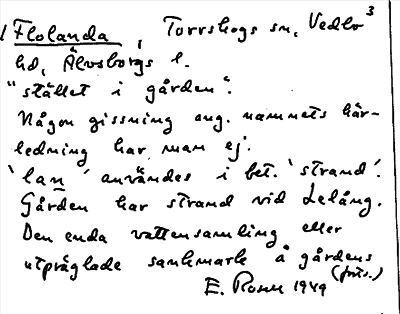 Flolanda, Torrskogs sn, Vedbo 3
hd, Älvsborgs l.
"stället i gården".
Någon gissning ang. namnets här-
ledning har man ej.
'lan' användes i bet. 'strand'.
Gården har strand vid Lelång.
Den enda vattensamling eller
utpräglade sankmark å gårdens
(forts.)
E. Rosen 1949